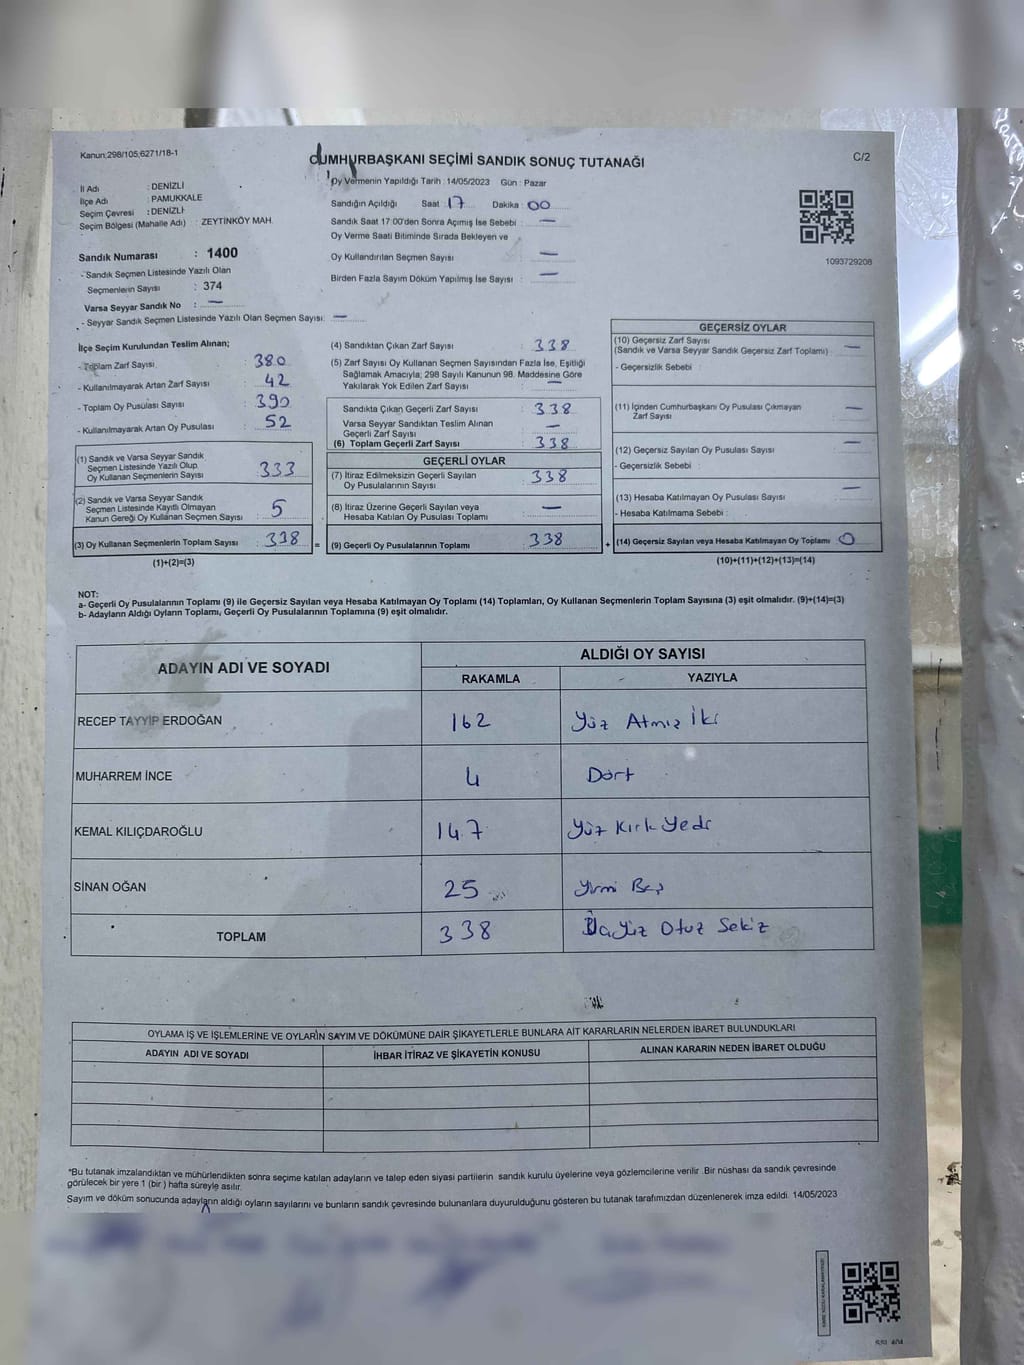 Kanun;298/105,6271/18-1
CUMHURBAŞKANI SEÇİMİ SANDIK SONUÇ TUTANAĞI
C/2
Oy Vermenin Yapıldığı Tarih : 14/05/2023 Gün : Pazar
İl Adı : DENİZLİ
İlçe Adı : PAMUKKALE
Seçim Çevresi : DENİZLİ
Seçim Bölgesi (Mahalle Adı) : ZEYTİNKÖY MAH.
Sandığın Açıldığı Saat : 17 Dakika : 00
Sandık Saat 17:00'den Sonra Açımış İse Sebebi : —
Oy Verme Saati Bitiminde Sırada Bekleyen ve
Oy Kullandırılan Seçmen Sayısı : —
Birden Fazla Sayım Döküm Yapılmış İse Sayısı : —
1093729208
Sandık Numarası : 1400
- Sandık Seçmen Listesinde Yazılı Olan
Seçmenlerin Sayısı : 374
Varsa Seyyar Sandık No : —
- Seyyar Sandık Seçmen Listesinde Yazılı Olan Seçmen Sayısı: —
İlçe Seçim Kurulundan Teslim Alınan;
- Toplam Zarf Sayısı : 380
- Kullanılmayarak Artan Zarf Sayısı : 42
- Toplam Oy Pusulası Sayısı : 390
- Kullanılmayarak Artan Oy Pusulası : 52
(1) Sandık ve Varsa Seyyar Sandık
Seçmen Listesinde Yazılı Olup
Oy Kullanan Seçmenlerin Sayısı : 333
(2) Sandık ve Varsa Seyyar Sandık
Seçmen Listesinde Kayıtlı Olmayan
Kanun Gereği Oy Kullanan Seçmen Sayısı : 5
(3) Oy Kullanan Seçmenlerin Toplam Sayısı : 338 =
(1)+(2)=(3)
(4) Sandıktan Çıkan Zarf Sayısı : 338
(5) Zarf Sayısı Oy Kullanan Seçmen Sayısından Fazla İse, Eşitliği
Sağlamak Amacıyla; 298 Sayılı Kanunun 98. Maddesine Göre
Yakılarak Yok Edilen Zarf Sayısı : —
Sandıkta Çıkan Geçerli Zarf Sayısı : 338
Varsa Seyyar Sandıktan Teslim Alınan
Geçerli Zarf Sayısı : —
(6) Toplam Geçerli Zarf Sayısı : 338
GEÇERLİ OYLAR
(7) İtiraz Edilmeksizin Geçerli Sayılan
Oy Pusulalarının Sayısı : 338
(8) İtiraz Üzerine Geçerli Sayılan veya
Hesaba Katılan Oy Pusulası Toplamı : —
(9) Geçerli Oy Pusulalarının Toplamı : 338 +
GEÇERSİZ OYLAR
(10) Geçersiz Zarf Sayısı
(Sandık ve Varsa Seyyar Sandık Geçersiz Zarf Toplamı) : —
- Geçersizlik Sebebi :
(11) İçinden Cumhurbaşkanı Oy Pusulası Çıkmayan
Zarf Sayısı : —
(12) Geçersiz Sayılan Oy Pusulası Sayısı : —
- Geçersizlik Sebebi :
(13) Hesaba Katılmayan Oy Pusulası Sayısı : —
- Hesaba Katılmama Sebebi :
(14) Geçersiz Sayılan veya Hesaba Katılmayan Oy Toplamı : 0
(10)+(11)+(12)+(13)=(14)
NOT:
a- Geçerli Oy Pusulalarının Toplamı (9) ile Geçersiz Sayılan veya Hesaba Katılmayan Oy Toplamı (14) Toplamları, Oy Kullanan Seçmenlerin Toplam Sayısına (3) eşit olmalıdır. (9)+(14)=(3)
b- Adayların Aldığı Oyların Toplamı, Geçerli Oy Pusulalarının Toplamına (9) eşit olmalıdır.
ADAYIN ADI VE SOYADI
ALDIĞI OY SAYISI
RAKAMLA YAZIYLA
RECEP TAYYİP ERDOĞAN 162 Yüz Atmız İki
MUHARREM İNCE 4 Dört
KEMAL KILIÇDAROĞLU 147 Yüz Kırk Yedi
SİNAN OĞAN 25 Yirmi Beş
TOPLAM 338 Otuz Sekiz
OYLAMA İŞ VE İŞLEMLERİNE VE OYLARIN SAYIM VE DÖKÜMÜNE DAİR ŞİKAYETLERLE BUNLARA AİT KARARLARIN NELERDEN İBARET BULUNDUKLARI
ADAYIN ADI VE SOYADI İHBAR İTİRAZ VE ŞİKAYETİN KONUSU ALINAN KARARIN NEDEN İBARET OLDUĞU
*Bu tutanak imzalandıktan ve mühürlendikten sonra seçime katılan adayların ve talep eden siyasi partilerin sandık kurulu üyelerine veya gözlemcilerine verilir. Bir nüshası da sandık çevresinde
görülecek bir yere 1 (bir) hafta süreyle asılır.
Sayım ve döküm sonucunda adayların aldığı oyların sayılarını ve bunların sandık çevresinde bulunanlara duyurulduğunu gösteren bu tutanak tarafımızdan düzenlenerek imza edildi. 14/05/2023